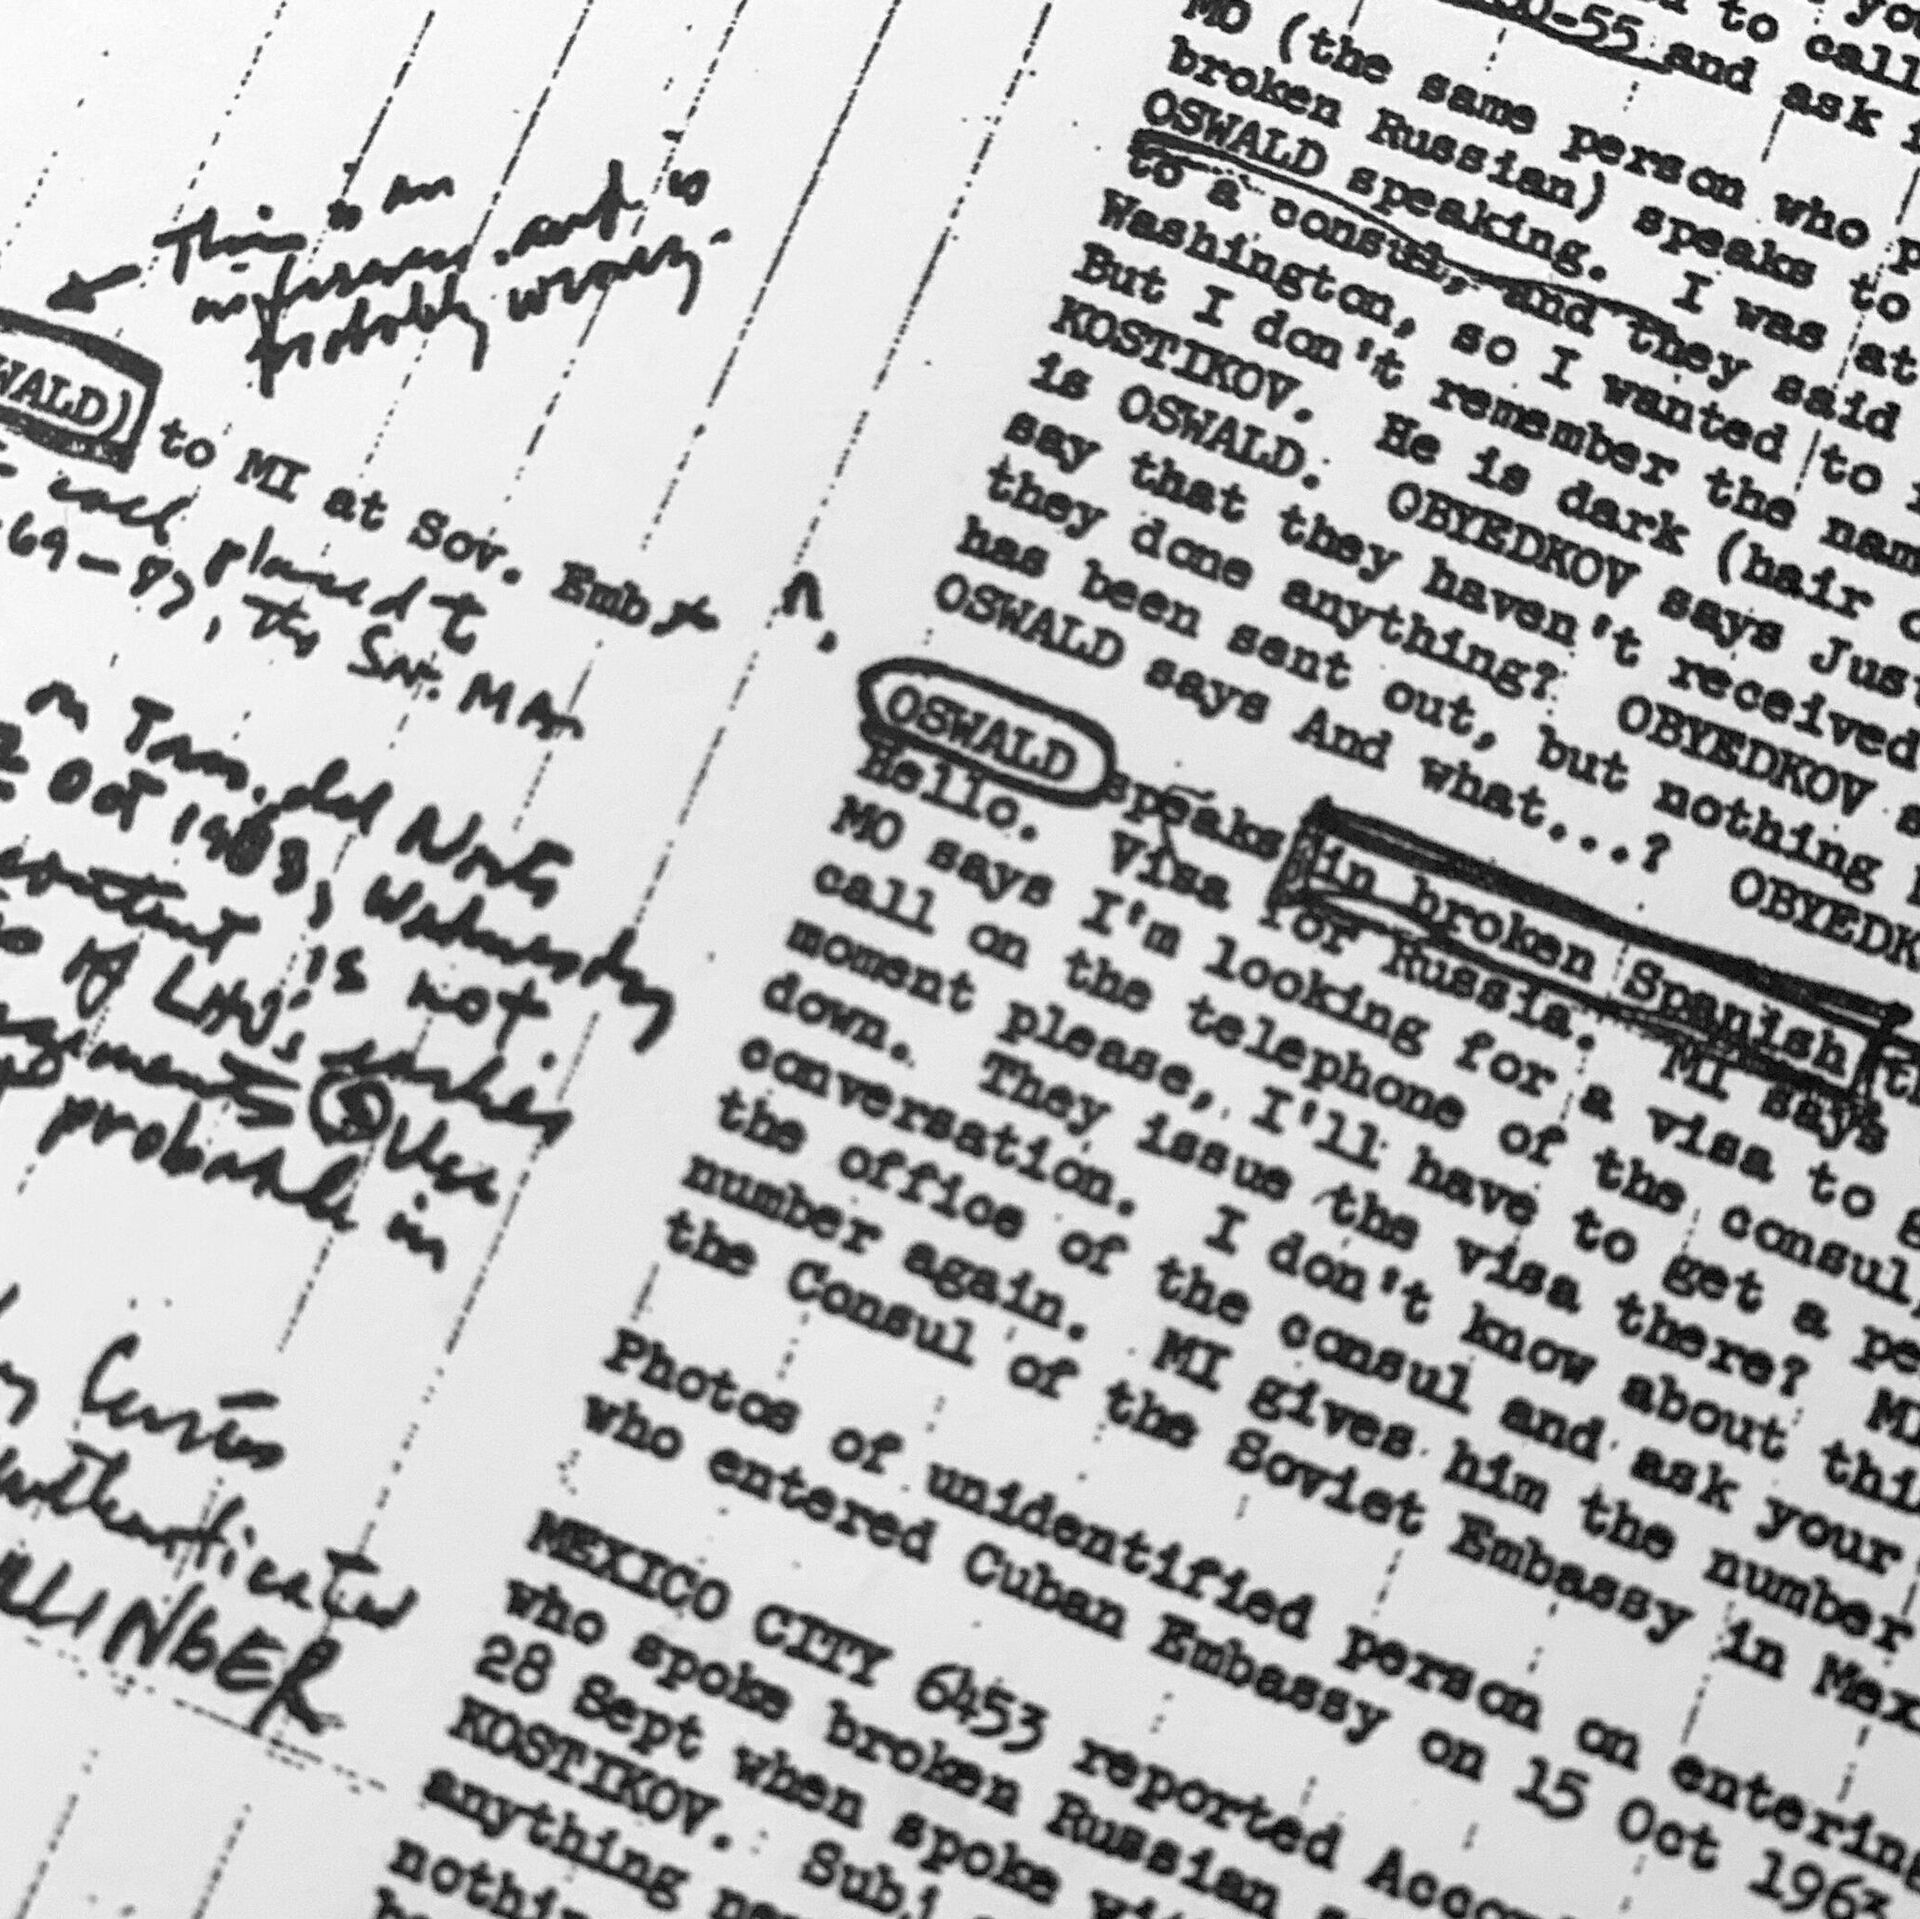 This is an
inference and is
probably wrong.
WALD) to MI at Sov. Emb
call placed to
69-87, the Sov. MA
on Trans. dld Note
Oct 1963, Wednesday
content is not
of LHO's earlier
Use
probable in
Curtis
authenticated
-55 and ask
to call
MO (the same person who
broken Russian) speaks to
OSWALD speaking. I was at
to a consul, and they said
Washington, so I wanted to
But I don't remember the nam
KOSTIKOV. He is dark (hair
is OSWALD. OBYEDKOV says Just
say that they haven't received
they done anything? OBYEDKOV
has been sent out, but nothing
OSWALD says And what...? OBYEDK
OSWALD speaks in broken Spanish
Hello. Visa for Russia. MI says
MO says I'm looking for a visa to
call on the telephone of the consul,
moment please, I'll have to get a pe
down. They issue the visa there? MI
conversation. I don't know about thi
the office of the consul and ask your
number again. MI gives him the number
the Consul of the Soviet Embassy in Mex
Photos of unidentified person on entering
who entered Cuban Embassy on 15 Oct 1963
MEXICO CITY 6453 reported Acco
who spoke broken Russian
28 Sept when spoke
KOSTIKOV. Subj
anything
nothin